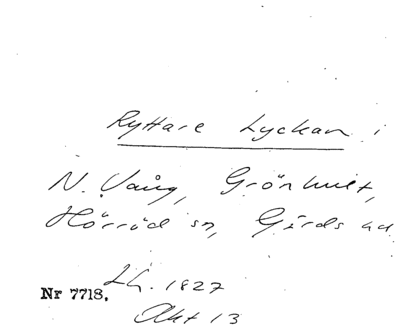 Ryttare Lyckan i
N. Vång, Grönhult,
Hörröd sn, Gärds hd
Lh. 1827
Nr 7718.
Akt 13